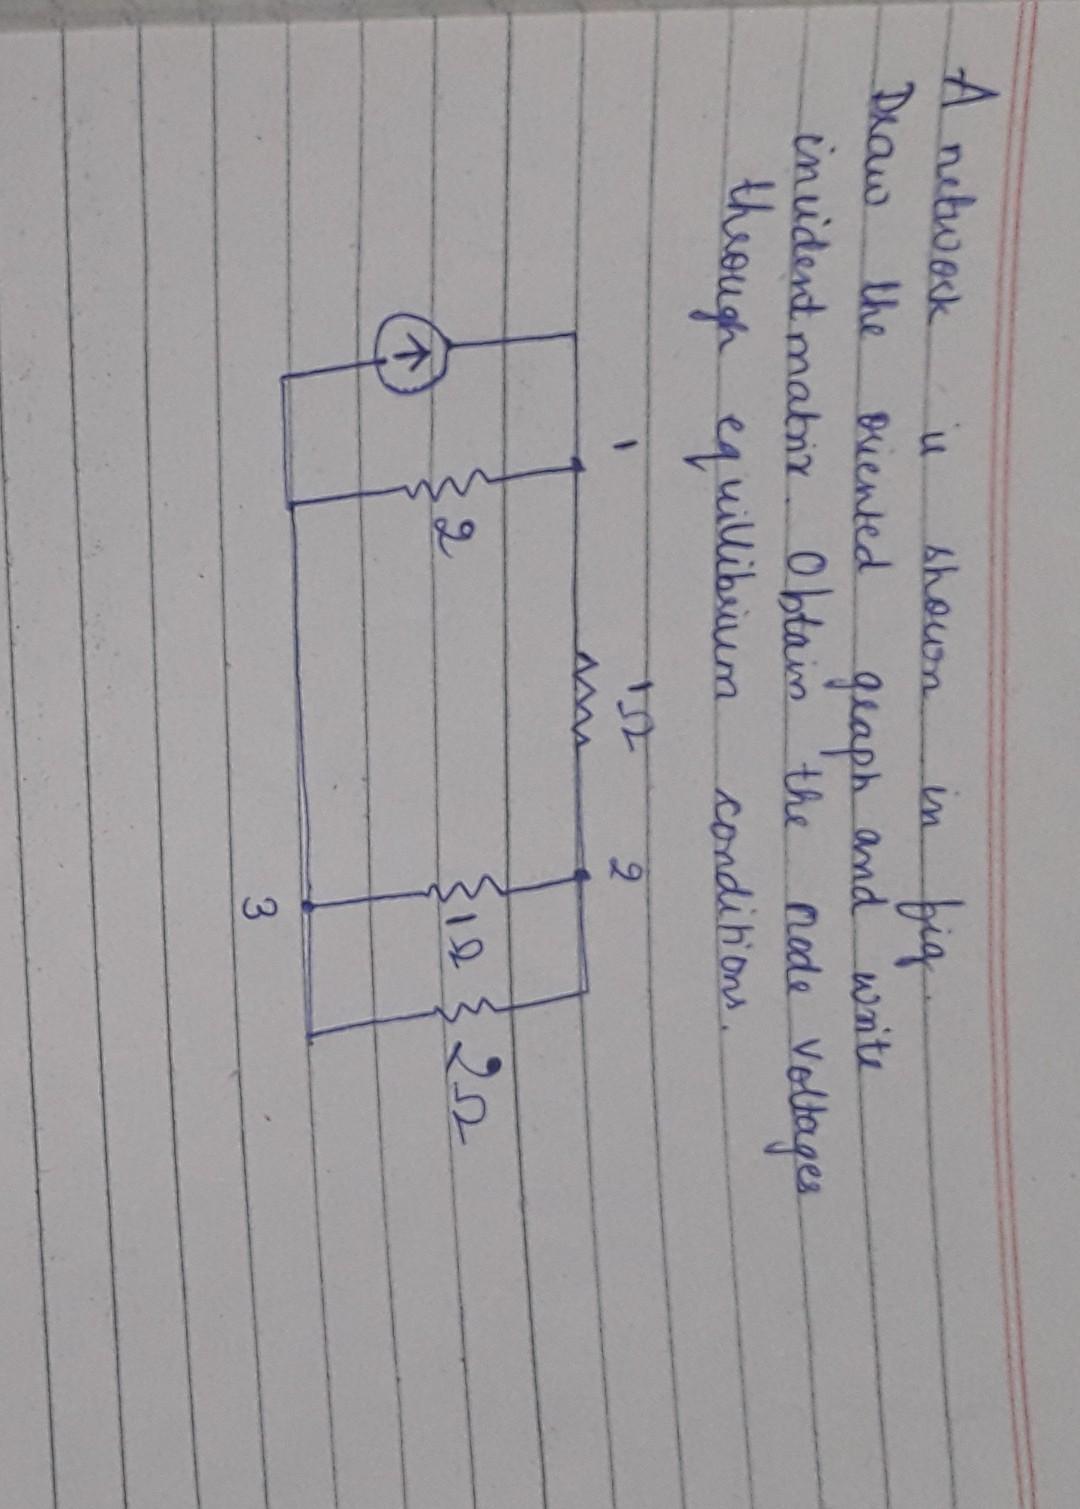 A network is shown in fig.
Draw the oriented graph and write
incident matrix. Obtain the node voltages
through equillibrium conditions.
1
1Ω
2
2
1Ω
2Ω
3